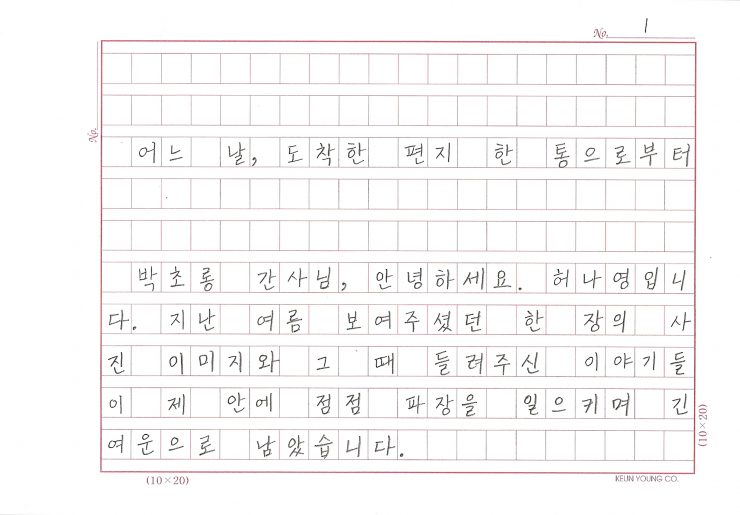 No. 1
No.
어느 날, 도착한 편지 한 통으로부터
박초롱 간사님, 안녕하세요. 허나영입니
다. 지난 여름 보여주셨던 한 장의 사
진 이미지와 그 때 들려주신 이야기들
이 제 안에 점점 파장을 일으키며 긴
여운으로 남았습니다.
(10×20)
(10×20)
KEUN YOUNG CO.